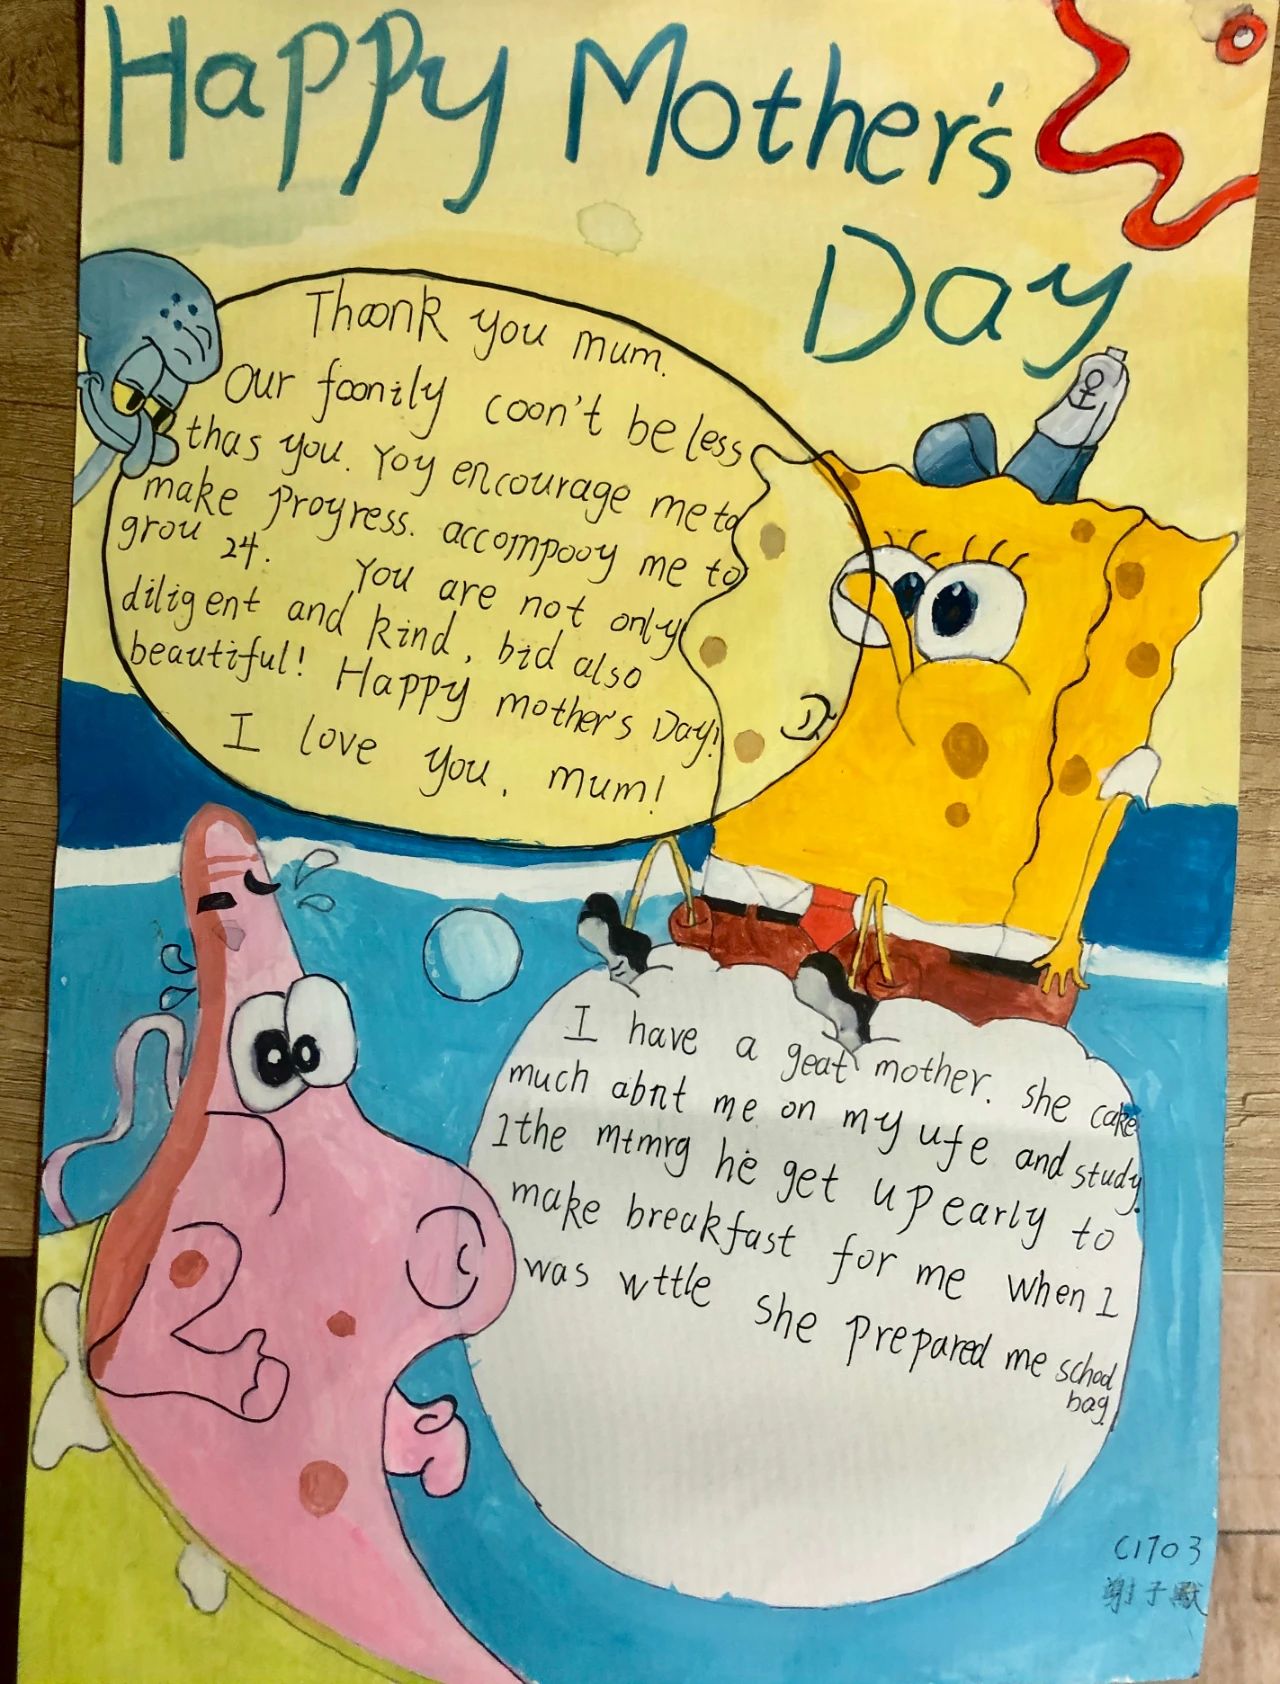 Happy Mother's
Day
Thoonk you mum.
Our foonily coon't be less
thas you. Yoy encourage me to
make progress. accompooy me to
grou 24. You are not only
diligent and kind, bid also
beautiful! Happy mother's Day!
I love you, mum!
I have a geat mother. she cake
much abnt me on my ufe and study.
1the mtmrg he get up early to
make breakfast for me when 1
was wttle she prepared me school
bag.
C1703
谢子默